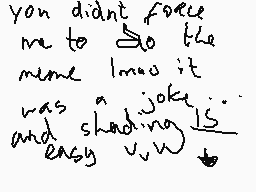 you didnt force
me to do the
meme lmao it
was a joke...
and shading is
easy vvv